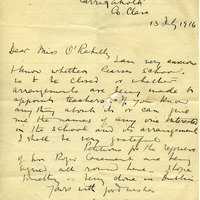 Carrigaholt
Co. Clare
13 July 1916
Dear Miss O'Rahilly
I am very anxious
to know whether Pearse's School
is to be closed or whether
arrangements are being made to
appoint teachers. If you know
anything about it or can
give me the names of any one interested
in the school and its arrangement
I shall be very grateful.
Petitions for the reprieve
of Sir Roger Casement are being
signed all round here. I hope
something is being done in Dublin
Yours with good wishes